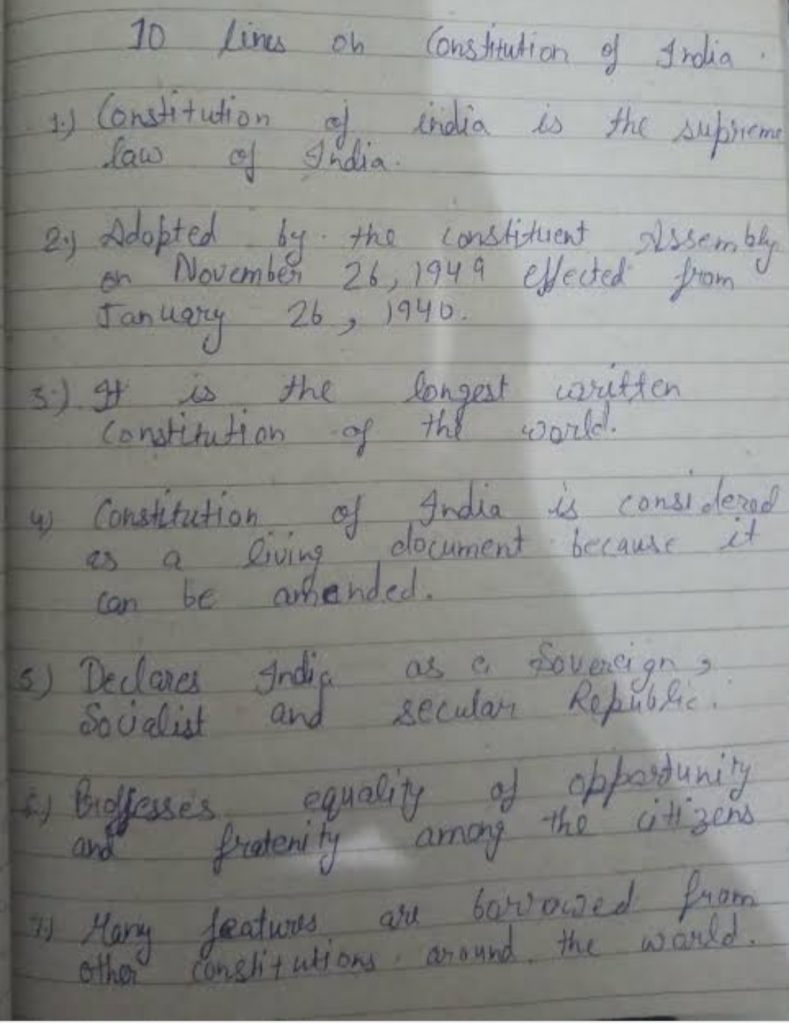 10 Lines on Constitution of India.
1.) Constitution of india is the supreme
law of India.
2.) Adopted by the Constituent Assembly
on November 26, 1949 effected from
January 26, 1940.
3.) It is the longest written
Constitution of the world.
4) Constitution of India is considered
as a living document because it
can be amended.
5) Declares India as a Sovereign,
Socialist and secular Republic.
6) Proffesses equality of opportunity
and fratenity among the citizens
7) Many features are borrowed from
other constitutions around the world.